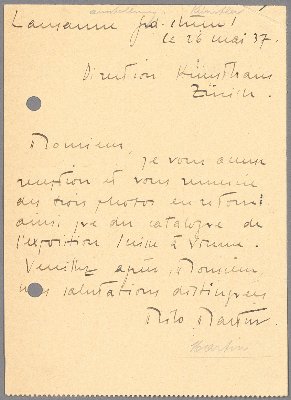 Lausanne
le 26 mai 37.
Direction Kunsthaus
Zürich.
Monsieur,
Je vous accuse
réception et vous remercie
des trois photos en retour
ainsi que du catalogue de
l'exposition Suisse à Vienne.
Veuillez agréer, Monsieur
mes salutations distinguées
Milo Martin.
Martin